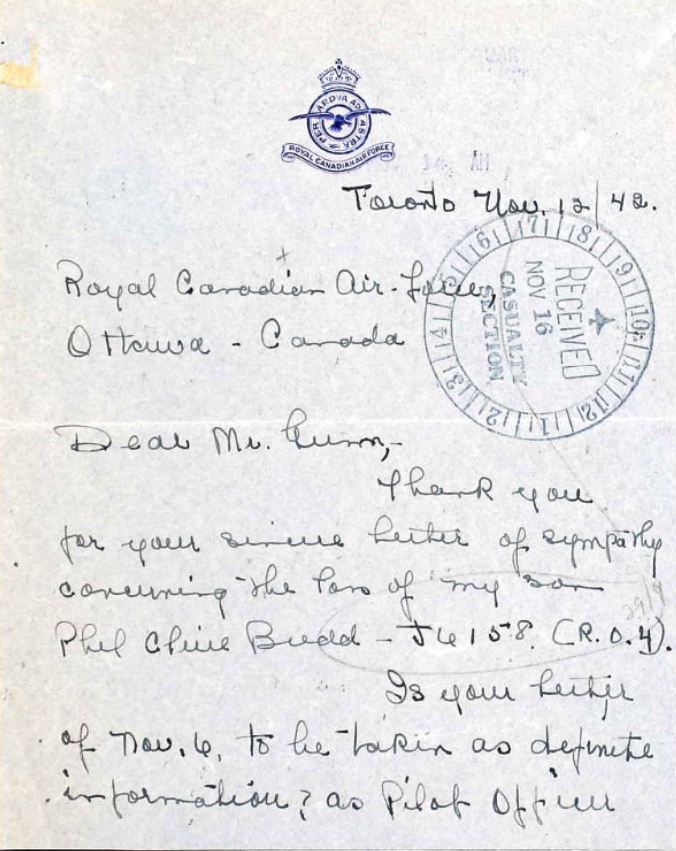 PER ARDVA AD ASTRA
ROYAL CANADIAN AIR FORCE
Toronto Nov. 12/42.
Royal Canadian Air-Force,
Ottawa - Canada
RECEIVED
NOV 16
CASUALTY
SECTION
1 2 3 4 5 6 7 8 9 10 11 12
Dear Mr. Gunn,-
Thank you
for your sincere letter of sympathy
concerning the loss of my son
Phil Clive Budd - J6158. (R.O.4).
Is your letter
of Nov. 6, to be taken as definite
information? as Pilot Officer